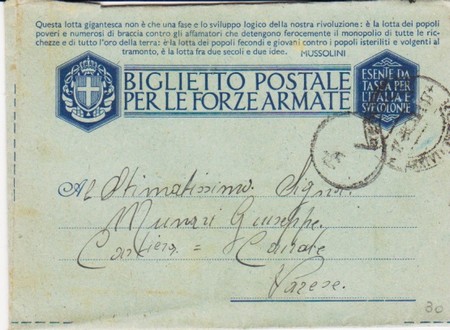 Questa lotta gigantesca non è che una fase e lo sviluppo logico della nostra rivoluzione: è la lotta dei popoli
poveri e numerosi di braccia contro gli affamatori che detengono ferocemente il monopolio di tutte le ric-
chezze e di tutto l'oro della terra: è la lotta dei popoli fecondi e giovani contro i popoli isteriliti e volgenti al
tramonto, è la lotta fra due secoli e due idee.
MUSSOLINI
BIGLIETTO POSTALE
PER LE FORZE ARMATE
ESENTE DA
TASSA PER
L'ITALIA E
SUE COLONIE
Al Stimatissimo Signor
Giuseppe
Varese
30